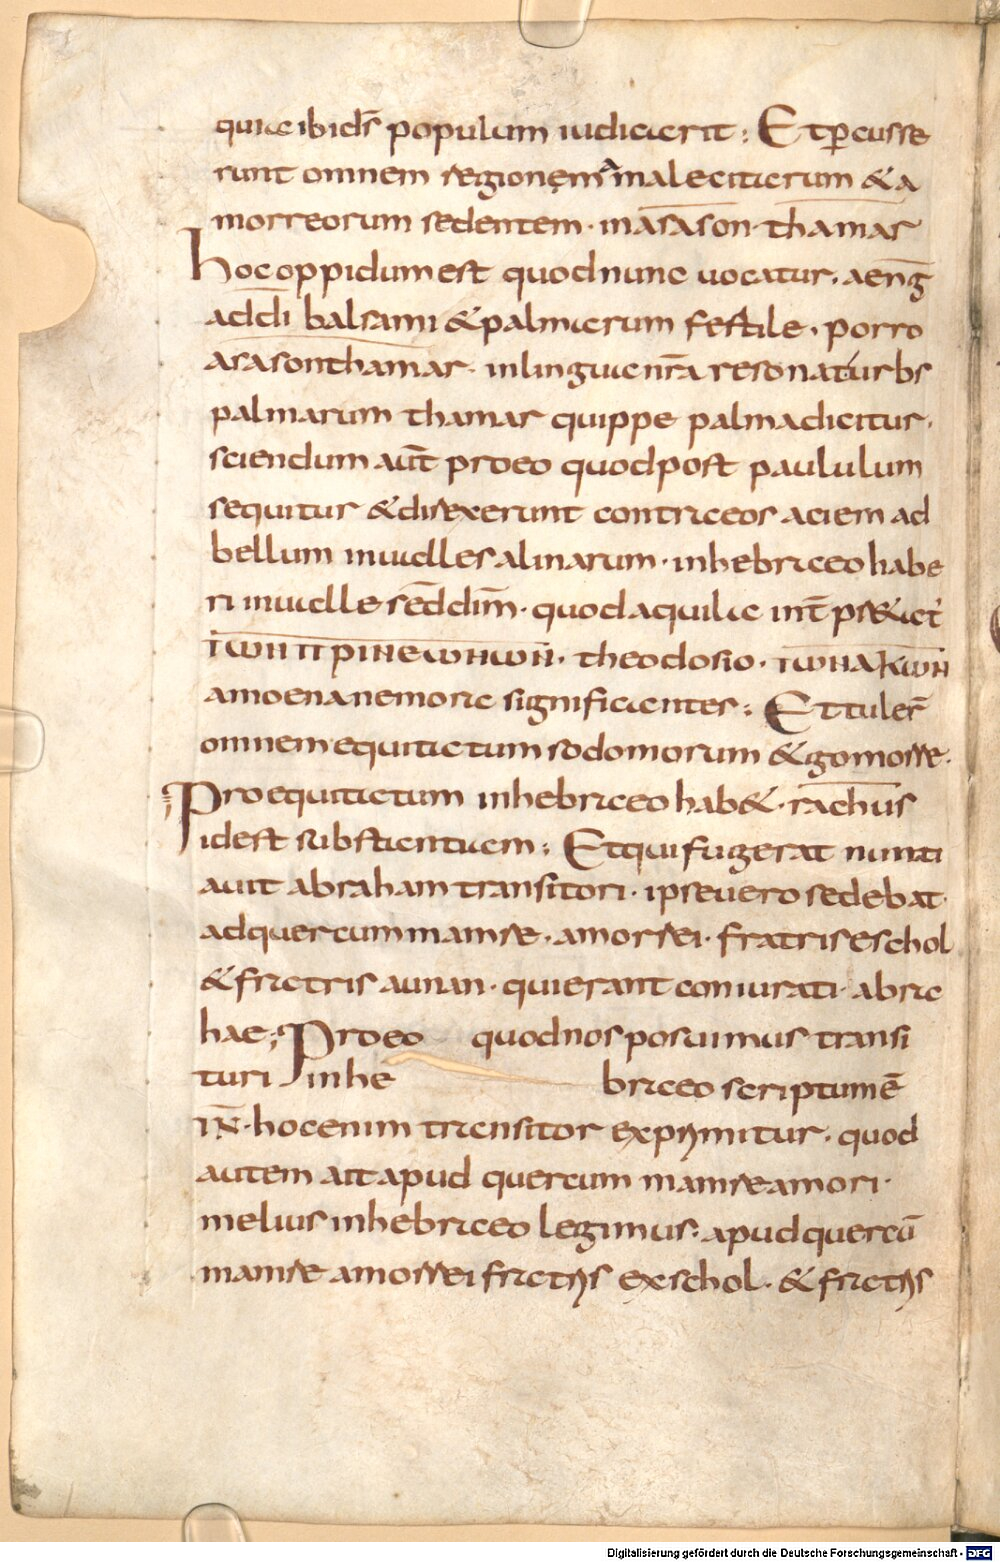 quia ibi ds̄ populum iudicarit : Et p̄cusse
runt omnem regionem malecitarum & a
morreorum sedentem · in asason · thamar
hoc oppidum est quod nunc uocatur · aeng̅
addi balsami & palmarum fertile · porro
asasonthamar · in lingua nr̄a resonat urbs
palmarum thamar quippe palma dicitur ·
sciendum aut̄ pro eo quod post paululum
sequitur & direxerunt contra eos aciem ad
bellum in ualle salinarum · in hebraeo habe
ri in ualle seddim · quod aquila int̄ p̄r&at᷒
ΤΩΝ ΠΡΙΝΕΩΝΩΝ · theodosio · ΤΩΝ ΑΛϹΩΝ
amoena nemora significantes : Et tuler̄
omnem equitatum sodomorum & gomorre ·
Pro equitatum in hebraeo hab& · rachus
id est substantiam : Et qui fugerat nunti
auit abraham transitori · ipse uero sedebat ·
ad quercum mamre · amorrei · fratris eschol
& fratris aunan · qui erant coniurati · abra
hae ; Pro eo quod nos posuimus transi
turi in he braeo scriptum ē
IN̄ · hoc enim transitor exprimitur · quod
autem ait apud quercum mamre amori ·
melius in hebraeo legimus · apud quercū
mamre amorrei fratris exschol · & fratris
Digitalisierung gefördert durch die Deutsche Forschungsgemeinschaft - DFG